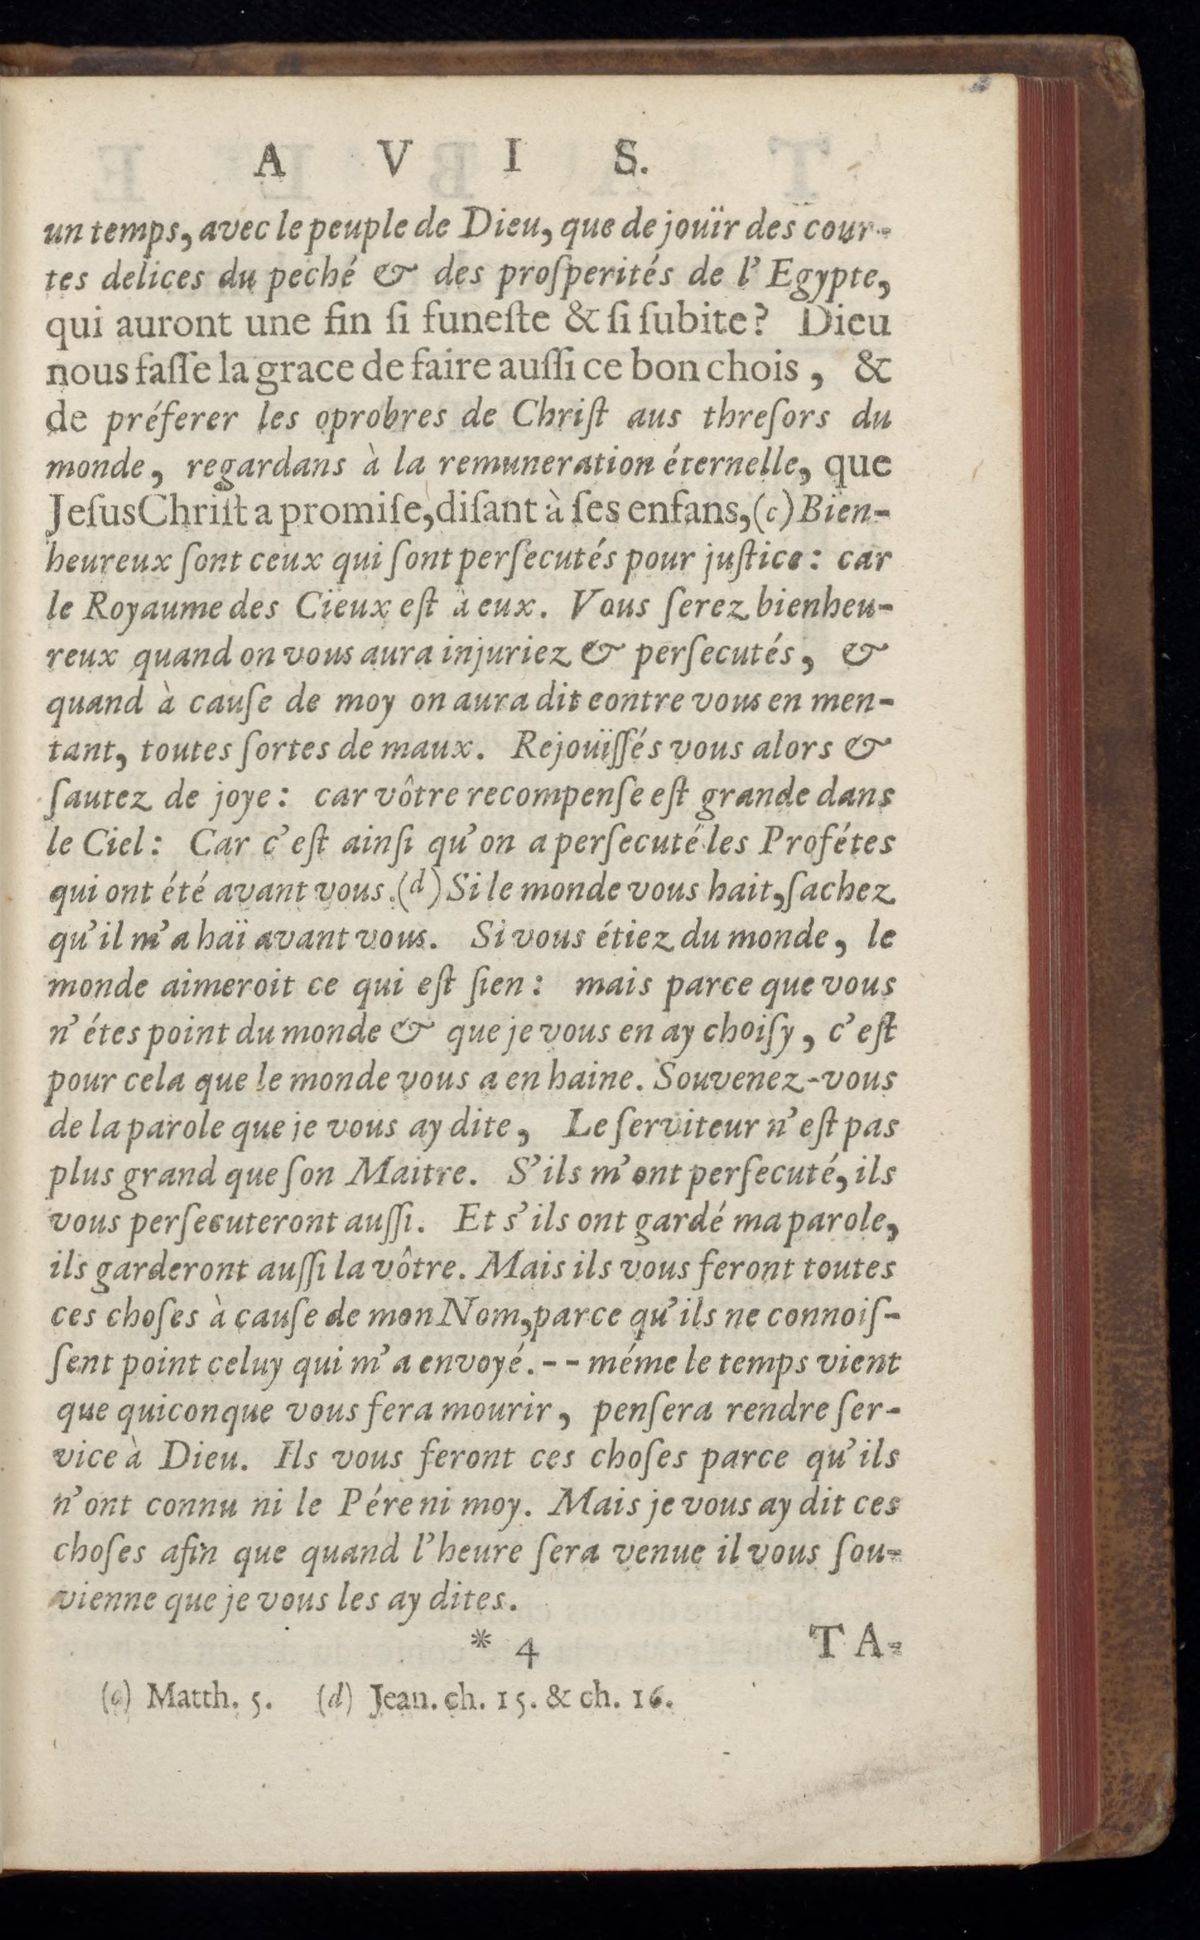 A V I S.
un temps, avec le peuple de Dieu, que de jouïr des cour-
tes delices du peché & des proſperités de l'Egypte,
qui auront une fin ſi funeſte & ſi ſubite? Dieu
nous faſſe la grace de faire auſſi ce bon chois, &
de préferer les oprobres de Chriſt aus threſors du
monde, regardans à la remuneration éternelle, que
Jeſus Chriſt a promiſe, diſant à ſes enfans, (c) Bien-
heureux ſont ceux qui ſont perſecutés pour juſtice: car
le Royaume des Cieux eſt à eux. Vous ſerez bienheu-
reux quand on vous aura injuriez & perſecutés, &
quand à cauſe de moy on aura dit contre vous en men-
tant, toutes ſortes de maux. Rejouïſſés vous alors &
ſautez de joye: car vôtre recompenſe eſt grande dans
le Ciel: Car c'eſt ainſi qu'on a perſecuté les Profétes
qui ont été avant vous. (d) Si le monde vous hait, ſachez
qu'il m'a haï avant vous. Si vous étiez du monde, le
monde aimeroit ce qui eſt ſien: mais parce que vous
n'étes point du monde & que je vous en ay choiſy, c'eſt
pour cela que le monde vous a en haine. Souvenez-vous
de la parole que je vous ay dite, Le ſerviteur n'eſt pas
plus grand que ſon Maitre. S'ils m'ont perſecuté, ils
vous perſecuteront auſſi. Et s'ils ont gardé ma parole,
ils garderont auſſi la vôtre. Mais ils vous feront toutes
ces choſes à cauſe de mon Nom, parce qu'ils ne connoiſ-
ſent point celuy qui m'a envoyé. - - méme le temps vient
que quiconque vous fera mourir, penſera rendre ſer-
vice à Dieu. Ils vous feront ces choſes parce qu'ils
n'ont connu ni le Pére ni moy. Mais je vous ay dit ces
choſes afin que quand l'heure ſera venue il vous ſou-
vienne que je vous les ay dites.
* 4 TA-
(c) Matth. 5. (d) Jean. ch. 15. & ch. 16.